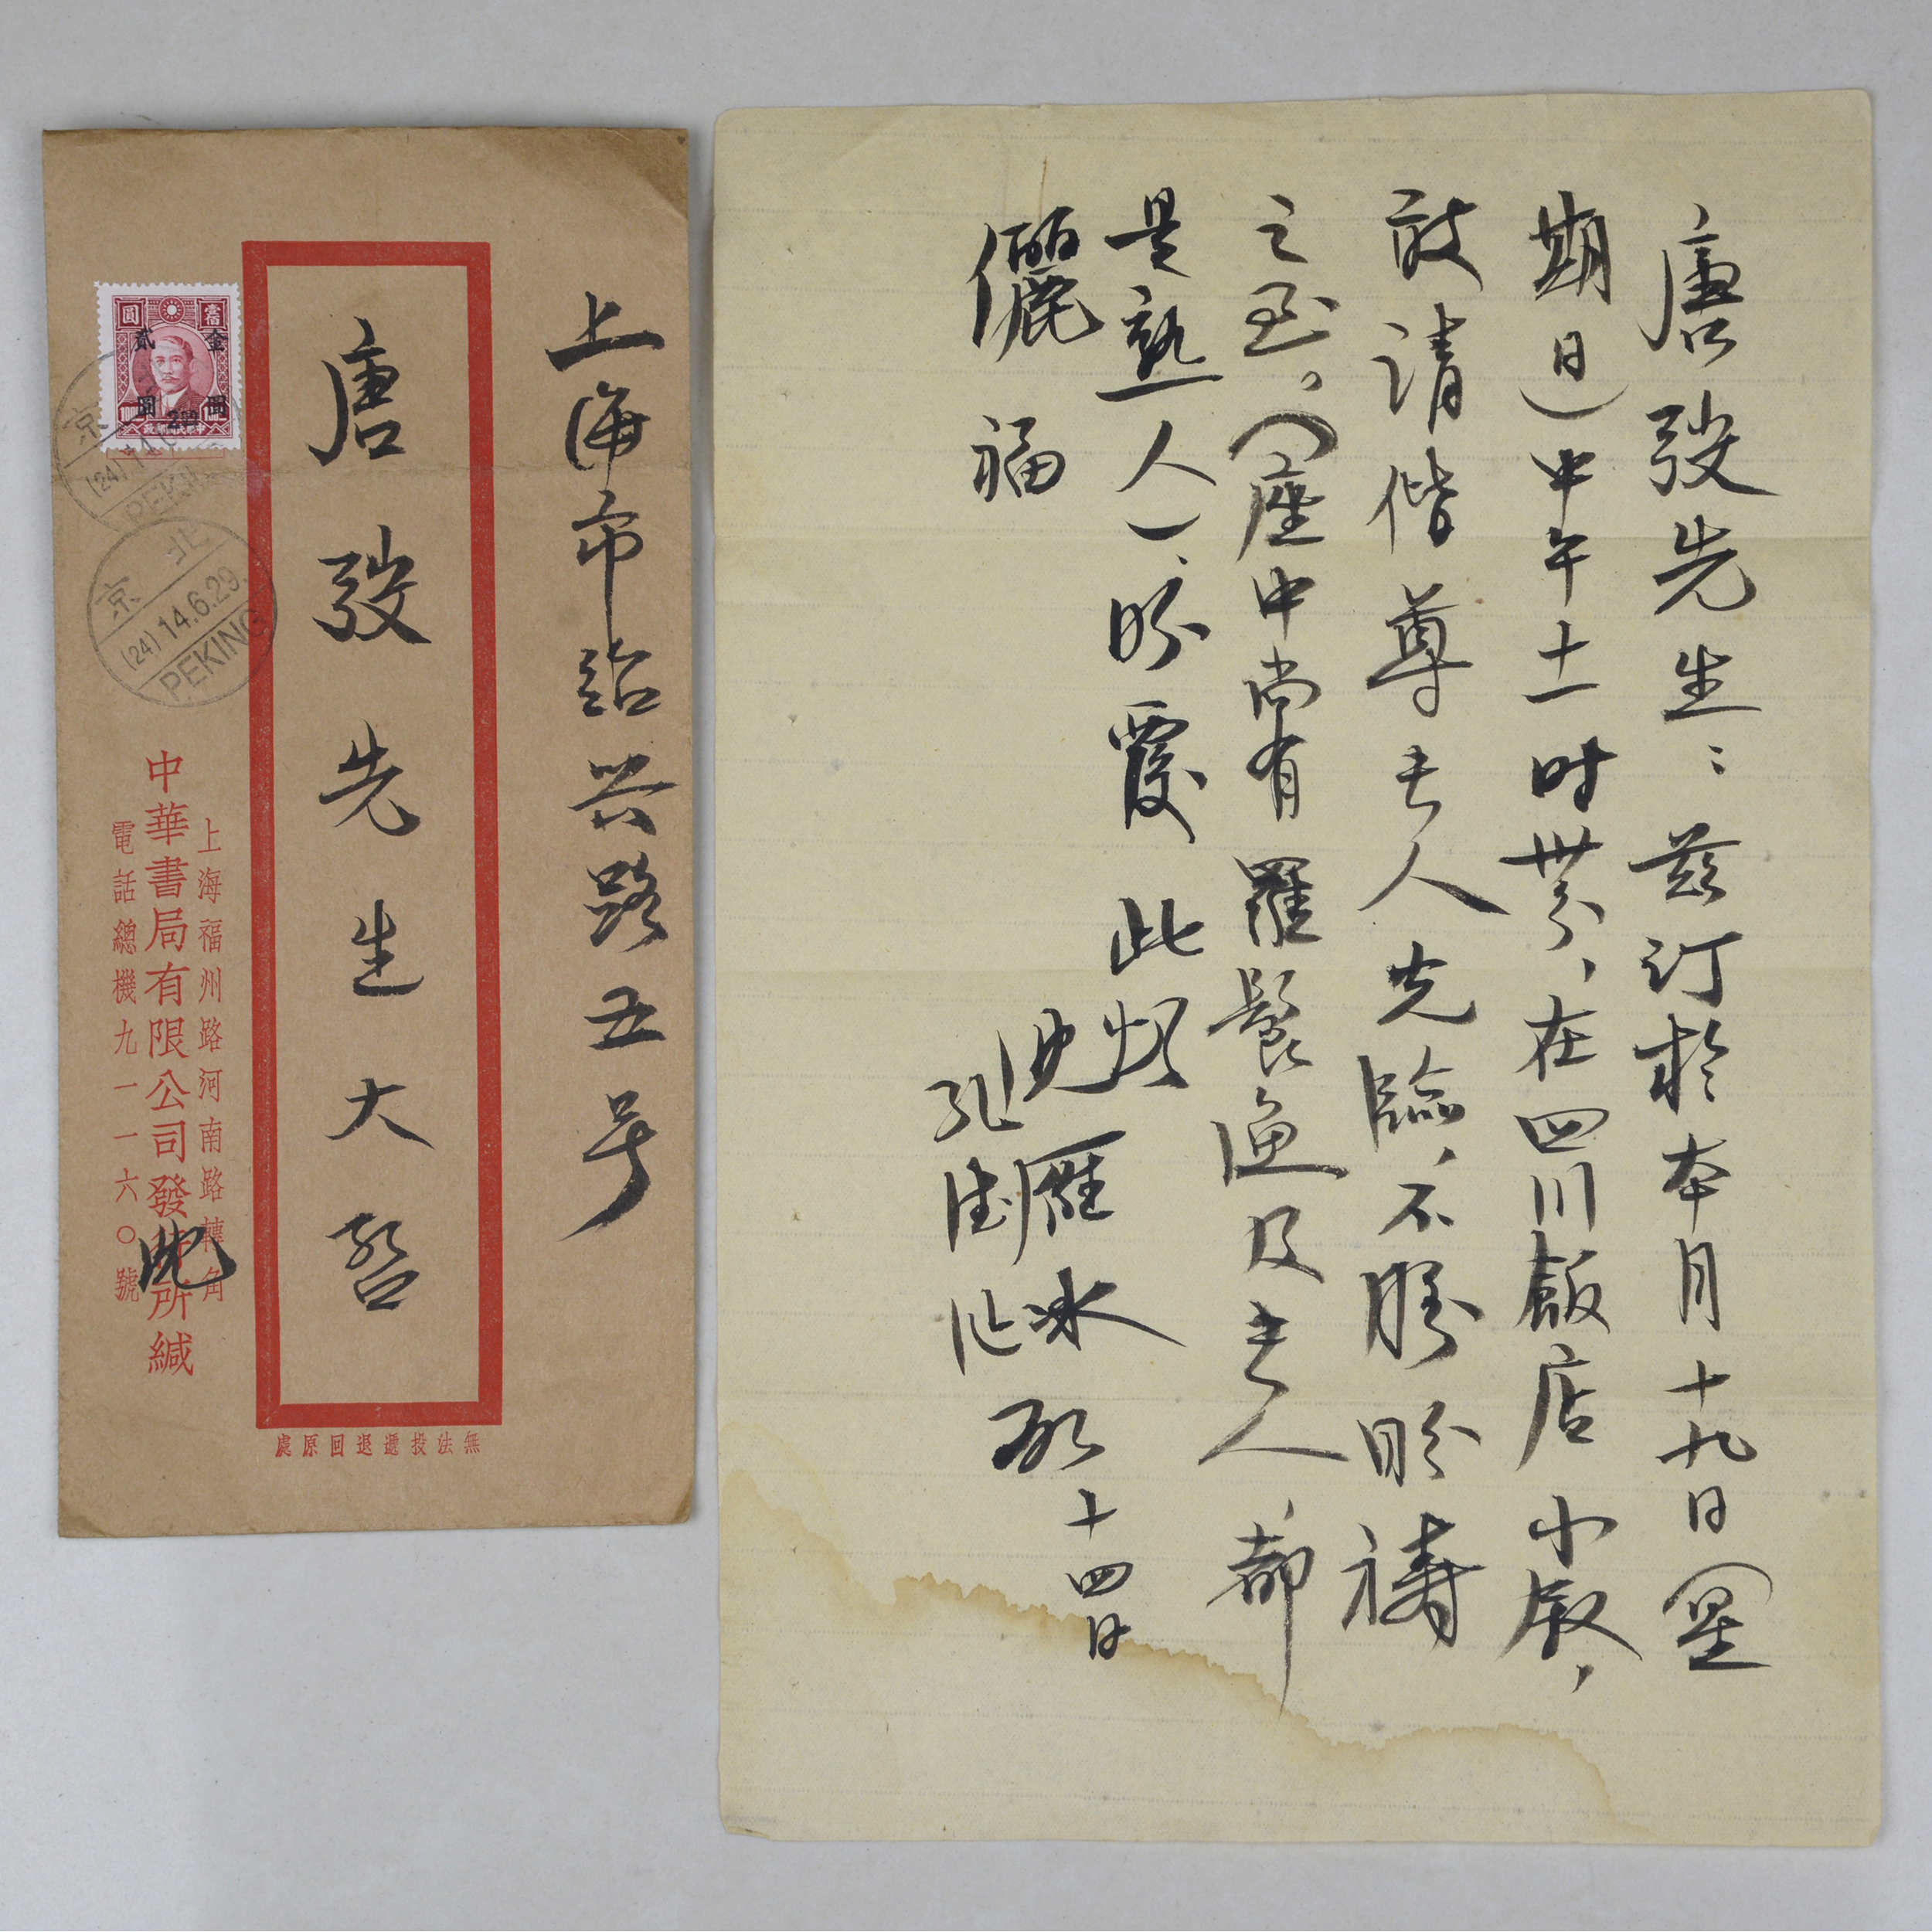 上海市紹兴路五号
唐弢先生大啓
沈
上海福州路河南路轉角
中華書局有限公司發行所緘
電話總機九一一六〇號
無法投遞退回原處
壹 圓
金 圓
貳 圓
200
中華民國郵政
北京
(24) 14.6.29.
PEKING
唐弢先生：兹订於本月十九日（星
期日）中午十一时卅分，在四川飯店小叙，
敬请偕尊夫人光臨，不勝盼禱
之至。（座中尚有羅髫漁及夫人，都
是熟人）、盼覆 此頌
儷福
沈雁冰
孔德沚 啟 十四日